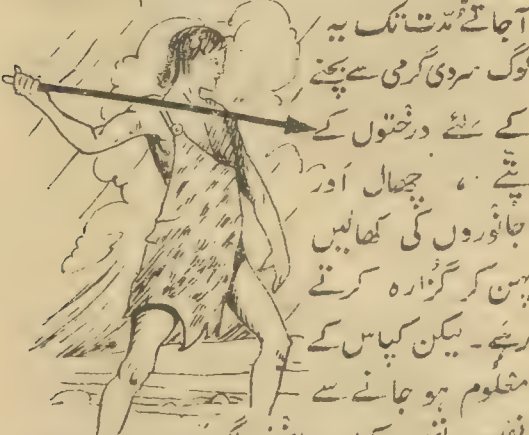 آجاتے مدّت تک یہ
لوگ سردی گرمی سے بچنے
کے لئے درختوں کے
پتّے ، چھال اور
جانوروں کی کھالیں
پہن کر گزارہ کرتے
رہے۔ لیکن کپاس کے
معلوم ہو جانے سے